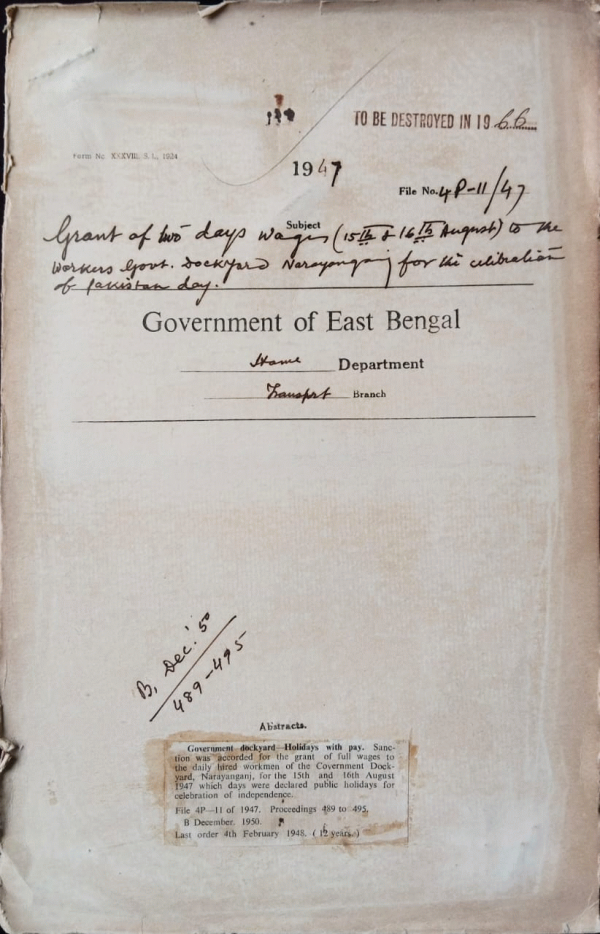 TO BE DESTROYED IN 1966
Form No. XXXVIII, S. L., 1924
1947
File No. 4P-11/47
Subject
Grant of two days wages (15th & 16th August) to the
workers Govt. Dockyard Narayanganj for the celibration
of Pakistan day.
Government of East Bengal
Home Department
Transport Branch
B, Dec. '50
489-495
Abstracts.
Government dockyard—Holidays with pay. Sanc-
tion was accorded for the grant of full wages to
the daily hired workmen of the Covernment Dock-
yard, Narayanganj, for the 15th and 16th August
1947 which days were declared public holidays for
celebration of independence.
File 4P—11 of 1947. Proceedings 489 to 495,
B December. 1950.
Last order 4th February 1948. (12 years.)